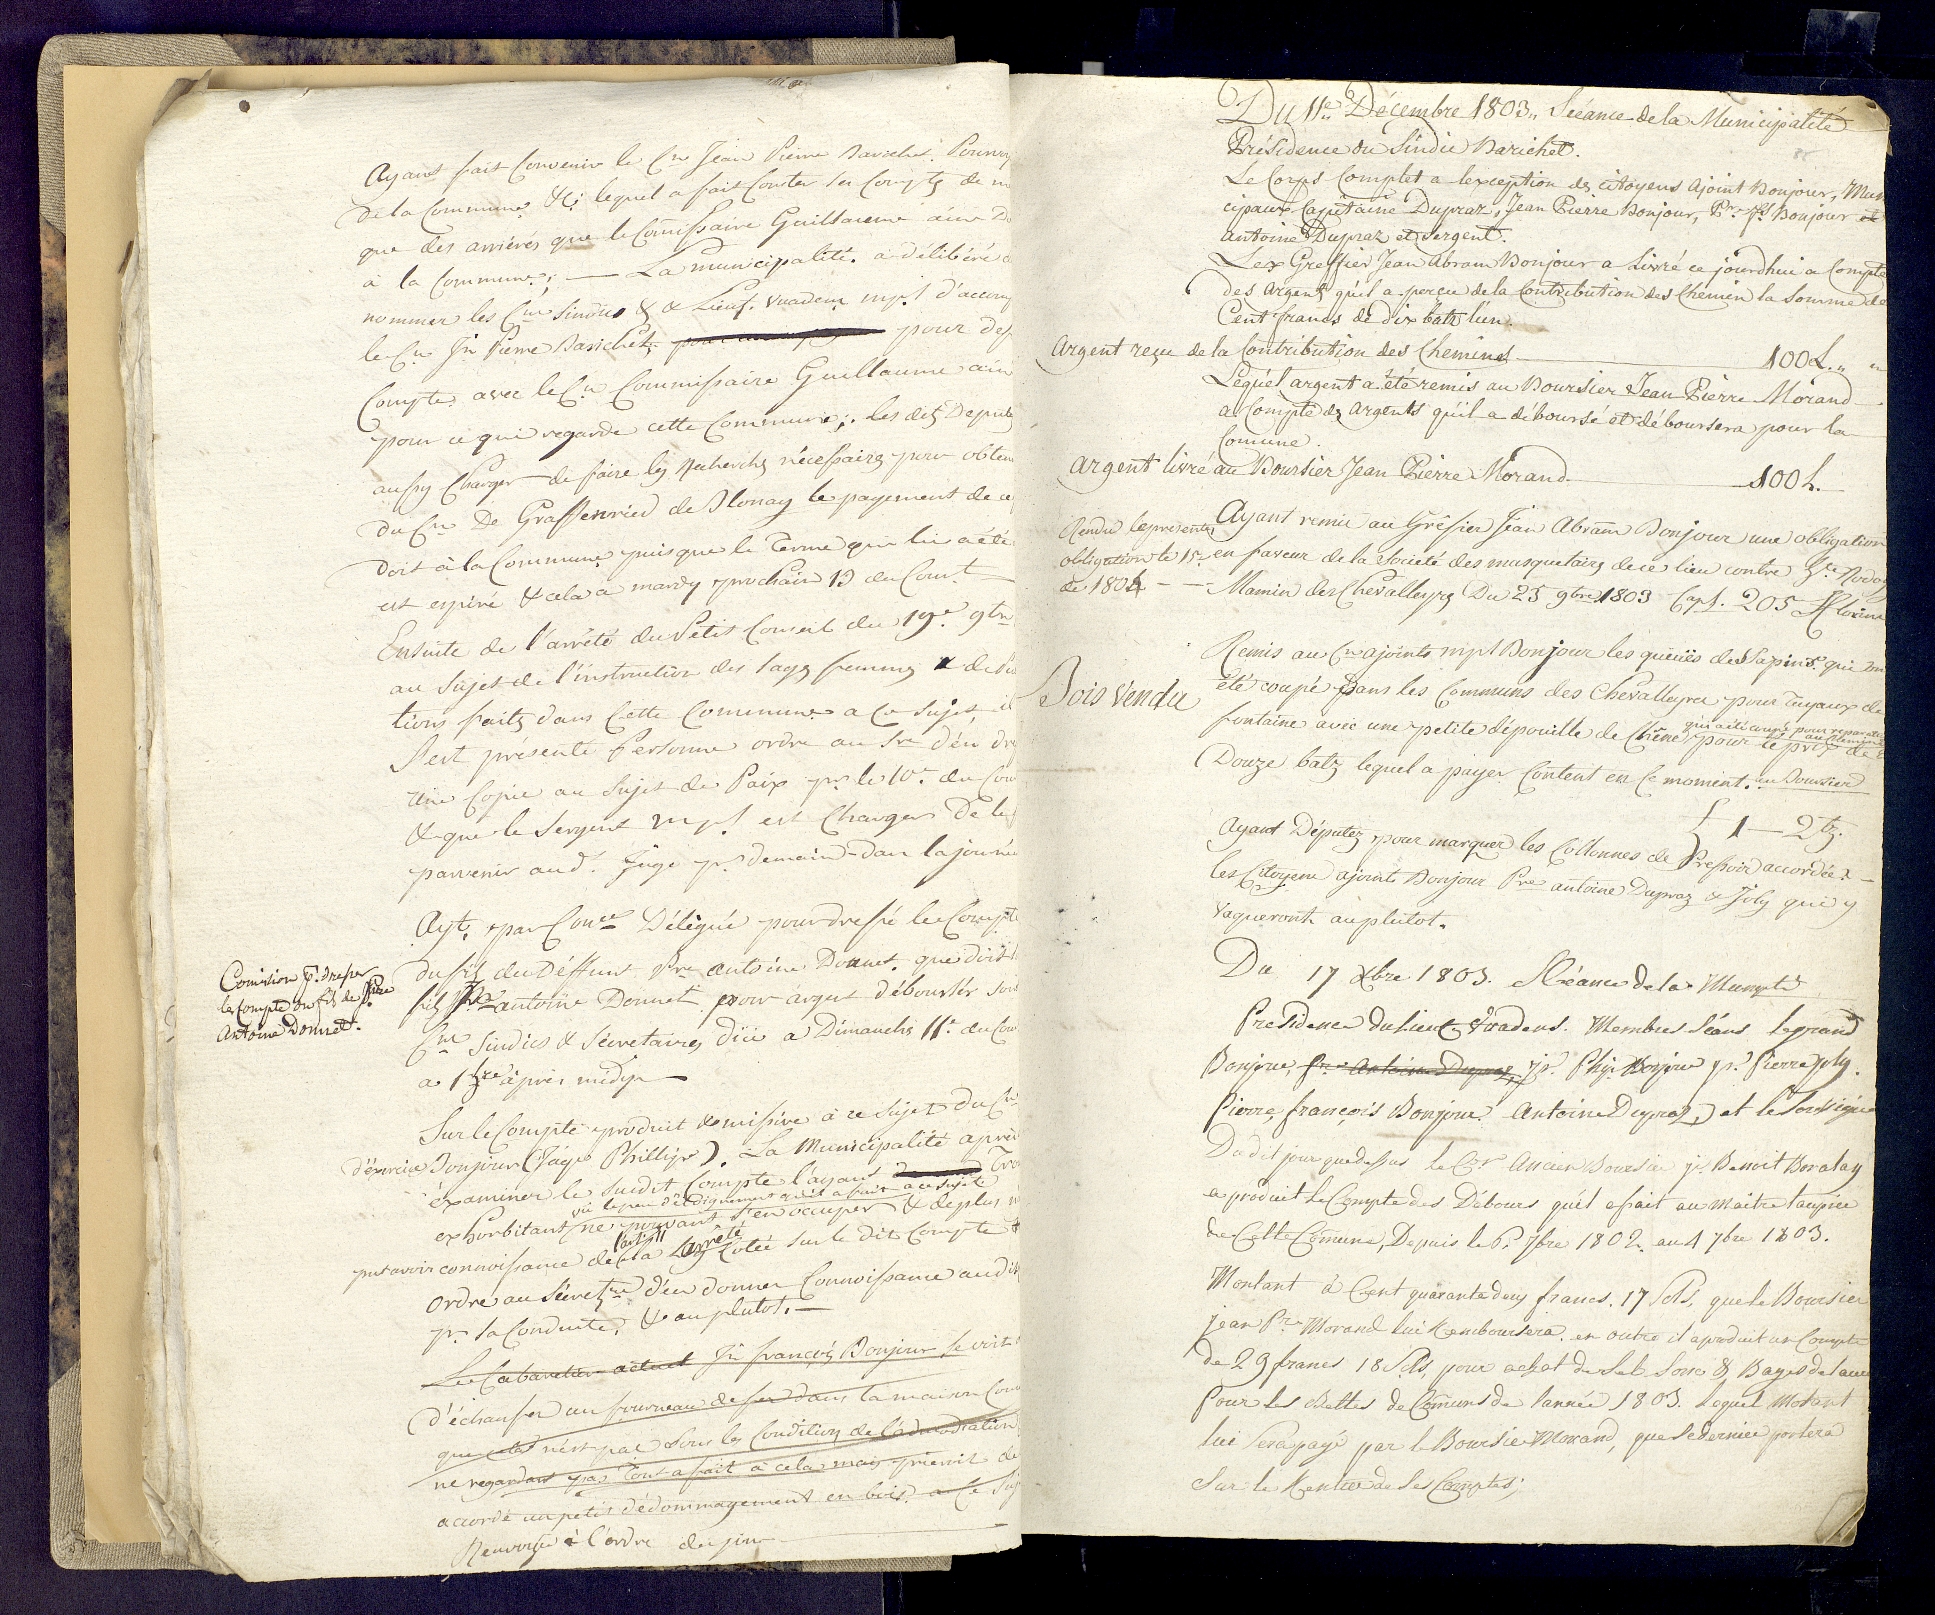 Ayant fait Convenir le Cn Jean Pierre Barichet
de la Commune &; lequel a fait Conter les Compte de
que des arriérés que le Comissaire Guillaume ainé
à la Commune; — La municipalité a délibéré
nommer les Cns Sindic & & Lieut. Vuadens mpl d'accom
le Cn Jn Pierre Barichet, pour
Compte avec le Cn Commissaire Guillaume ainé
pour ce qui regarde cette Commune; les dits Députés
aussy Charger de faire les recherches nécessaires pour obten
du Cn De Graffenried de Blonay le payement de ce
doit à la Commune puisque le Terme qui lui a été
est expiré & cela a mardy prochain 13 du Court
Ensuite de l'arrêté du Petit Conseil du 19e 9bre
au Sujet de l'instruction des sages femmes & de
tions faites dans Cette Commune a Ce Sujet, il
S'est présenté Personne ordre au Sre d'en
une Copie au Sujet de Paix pr le 10e du Cou
& que le Sergent mpl est Charger De les
parvenir aud. Juge pr demain dans la journée
Ayt. par Délégué pour dressé le Compte
Comision pr. dresser
le Compte du fils de Pierre
Antoine Donnet.
du fils du Deffunt Pre antoine Donnet que doit
fils Pre antoine Donnet pour argent déboursér
Cns Sindics & Sécretaires d'ici a Dimanche 11e du Cou
a 1 hre après midy
Sur le Compte produit & missive à ce Sujet du Cn
d'éxercice Bonjour (Jaqs Phillipe). La Municipalité après
éxaminer le Susdit Compte l'ayant
vû le peu d'éloignement qu'il a fait a ce Sujet
exhorbitant ne pouvant s'en occuper & de plus
l'article arrêté
put avoir connoissance de la Loy sur le dit Compte &
ordre au Sécretre d'en donner Connoissance audit
pr. sa Conduite, & au plutot. —
Le Cabaretier actuel Jn françois Bonjour, Se voit
d'échaufer un fourneau de fer dans la maison Com
que cela n'est pas Sous les Conditions de l'admodiation
ne regardant pas Tout a fait à cela mais
accordé un petit dédommagement en bois, a Ce Suj
Renvoyé à l'ordre du jour
Du 11e Décembre 1803,, Séeance de la Municipalité
Présidence du Sindic Barichet.
Le Corps Complet a l'exception des citoyens Ajoint Bonjour, Mun
cipaux Capitaine Dupraz, Jean Pierre Bonjour, Pre Fs Bonjour et
antoine Dupraz et Sergent.
L'ex Greffier Jean Abram Bonjour a Livré ce jourdhui a Compte
des Argents qu'il a perçu de la Contribution des Chemin la Somme de
Cent francs de dix batz l'un.
Argent reçu de la Contribution des Chemins — 100 L. „ „
Lequel argent a été remis au Boursier Jean Pierre Morand
a Compte des Argents qu'il a déboursé et déboursera pour la
Comune.
Argent livré au Boursier Jean Pierre Morand — 100 L.
Rendu la présente
obligation le 15e
de 1804 — —
Ayant remis au Gréfier Jean Abram Bonjour une obligation
en faveur de la Societé des musquetaires de ce lieu contre
Mamin des Chevalleyres Du 25 9bre 1803 Capl. 205 Florins
Bois Vendu
Remis au Cn ajoints mpl Bonjour les queües des Sapins qui on
été coupé dans les Communs des Chevalleyres pour Tuyaux de
fontaine avec une petite dépouille de Chêne pour le prix de
qui a été coupé pour réparation au
Douze batz lequel a payer Content en Ce moment. au Boursier
£ 1 — 2 bz.
Ayant Députez pour marquer les Collonnes de Pressoir accordées
les Citoyens ajoint Bonjour Pre antoine Dupraz & Joly qui y
Vaqueront au plutot.
Du 17 Xbre 1803. Séeance de la Munpté
Presidence du Lieut. Vuadens. Membres Séans legrand
Bonjour, Pre Antoine Dupraz, jn. Php. Bonjour jn. Pierre Joly.
Pierre françois Bonjour Antoine Dupraz, et le Soussigné
Du dit jour que dessus le Cn Ancien Boursier jn. Benoit Boralay
a produit le Compte des Débours qu'il a fait au Maitre taupier
de Cette Comune, Depuis le P. 7bre 1802. au 4 7bre 1803.
Montant à Cent quarante deux francs. 17 Sols, que le Boursier
jean Pre Morand lui Remboursera. en outre il a produit un Compte
de 29 francs 18 Sols, pour achat de Sel Sons &
Pour les Bettes de Comuns de l'année 1803. lequel Motant
lui Sera payé par le Boursier Morand, que le dernier portera
Sur le Rentier de Ses Comptes;